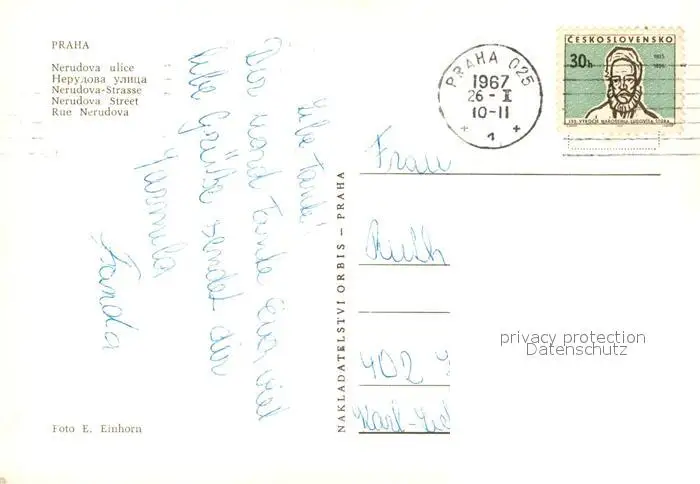 PRAHA
Nerudova ulice
Нерудова улица
Nerudova-Strasse
Nerudova Street
Rue Nerudova
Liebe Tante!
Dir und Tante Eva, viel
liebe Grüße sendet dir
Jarmila
Franda
Foto E. Einhorn
NAKLADATELSTVÍ ORBIS – PRAHA
PRAHA 025
1967
26 - I
10-11
1
ČESKOSLOVENSKO
30h
1815
1856
150. VÝROČIE NARODENIA ĽUDOVÍTA ŠTÚRA
Frau
Ruth
402
Karl-
privacy protection
Datenschutz